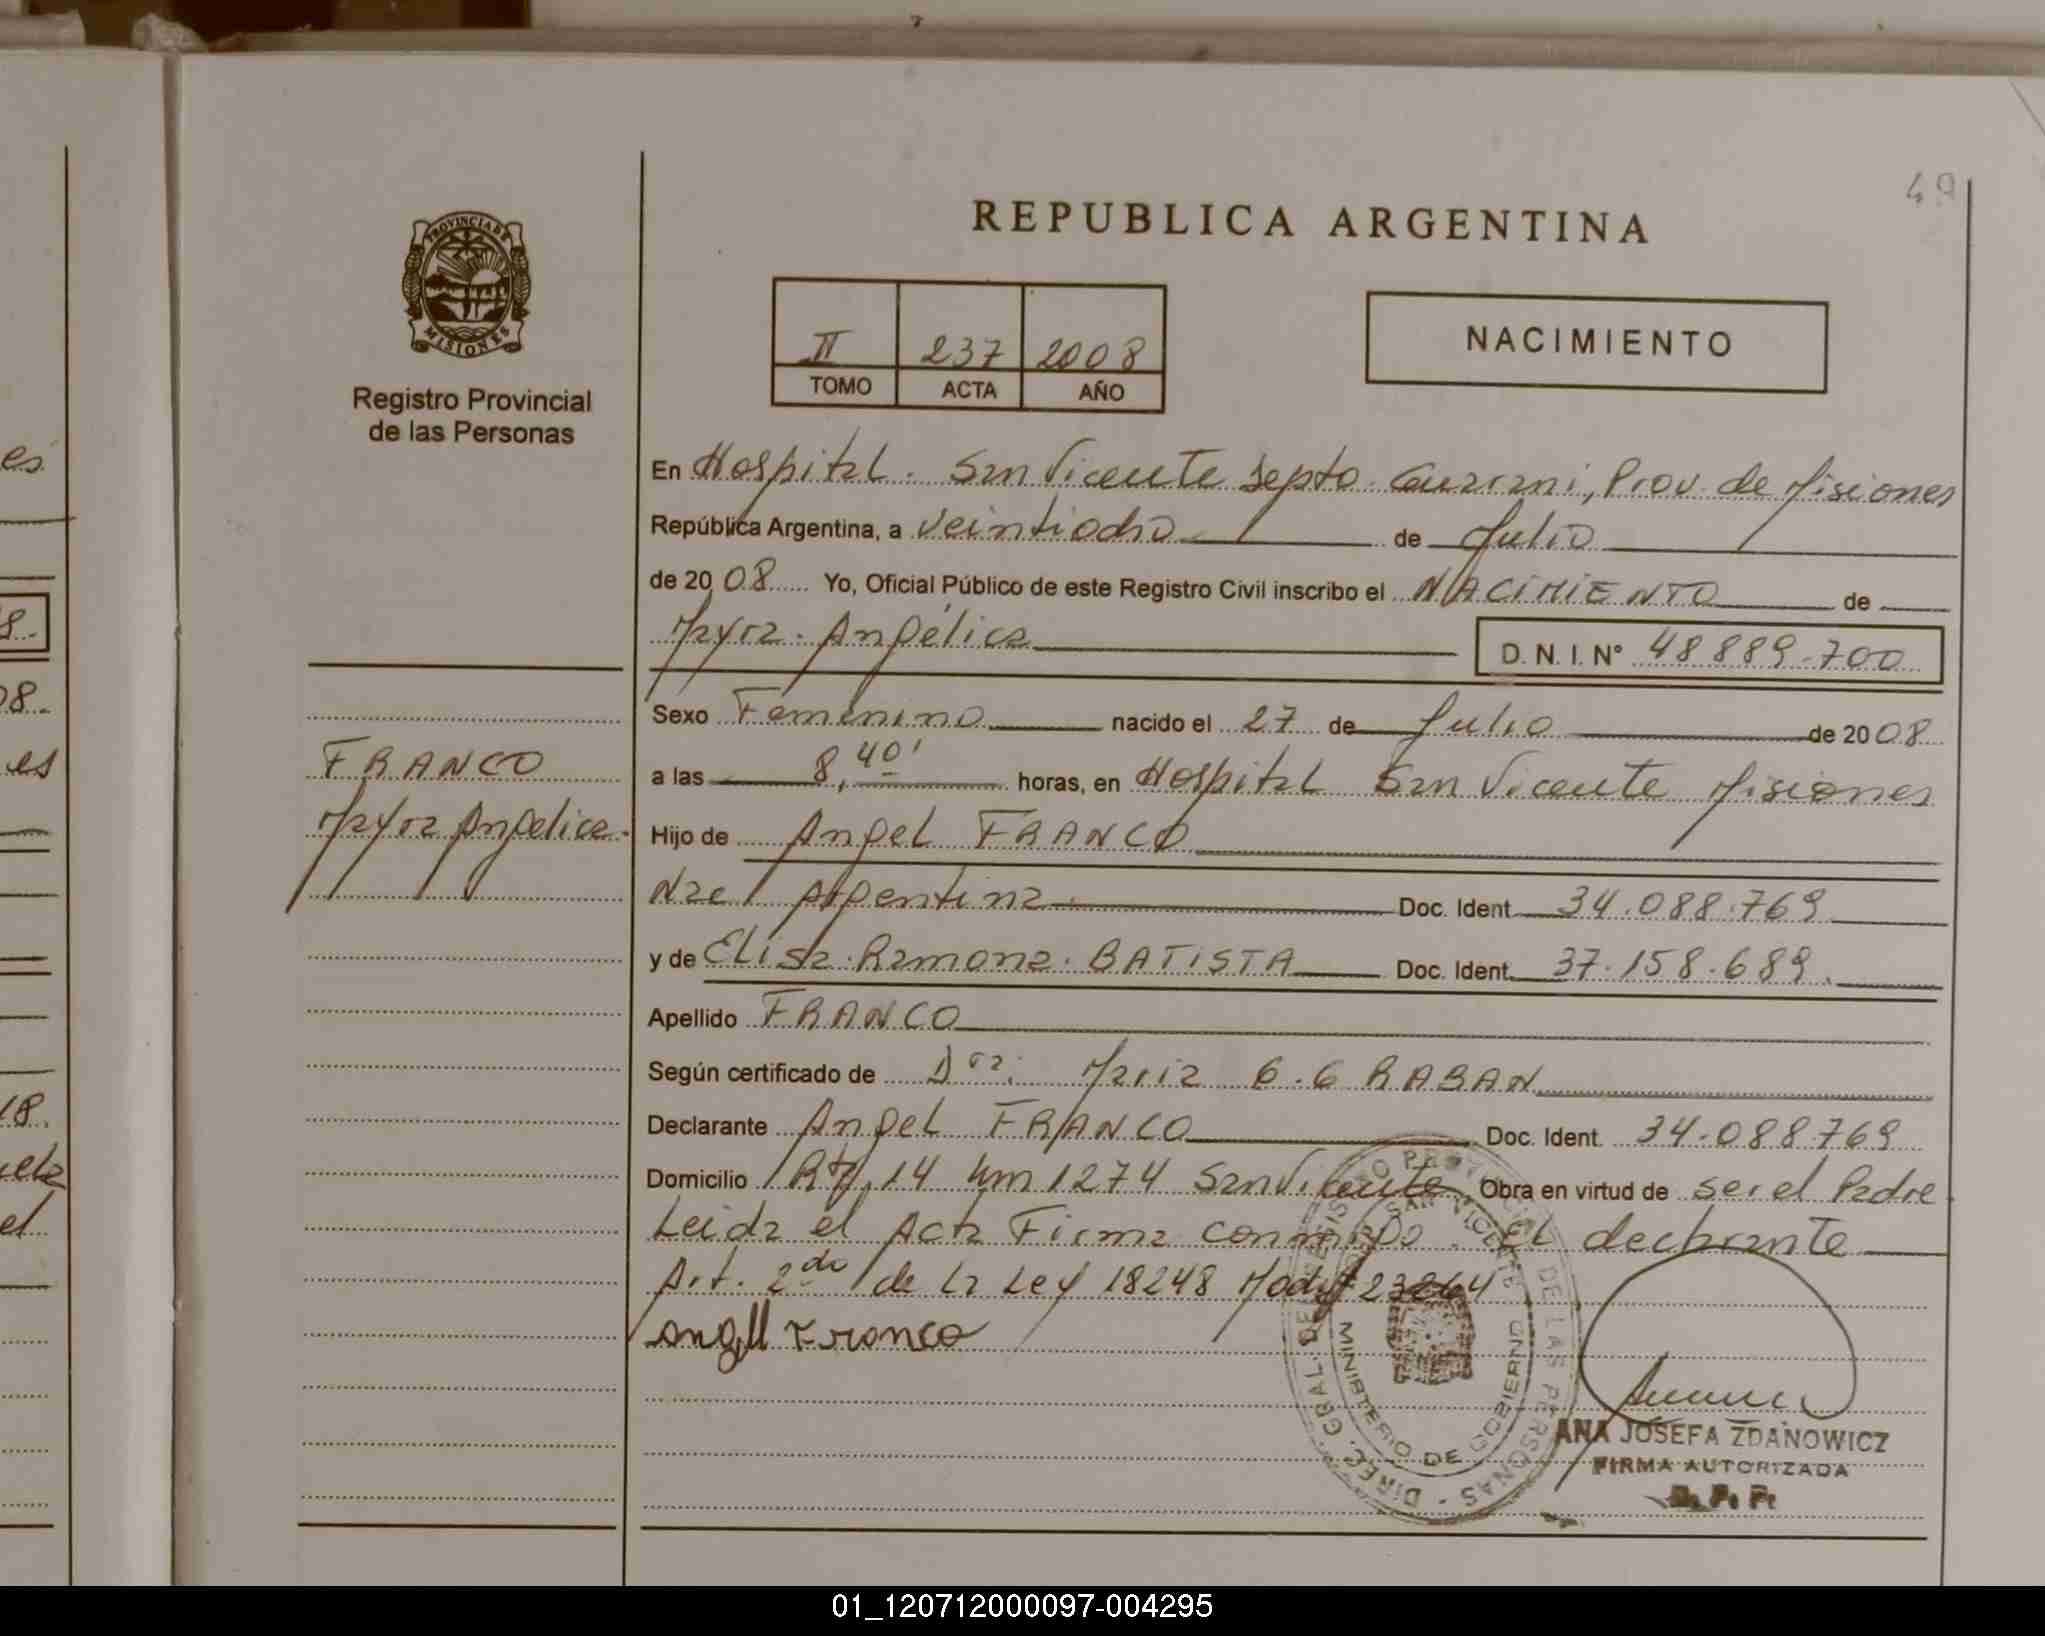 49
REPUBLICA ARGENTINA
PROVINCIA DE
MISIONES
Registro Provincial
de las Personas
II 237 2008
TOMO ACTA AÑO
NACIMIENTO
En Hospital. San Vicente Depto. Guarani, Prov. de Misiones
República Argentina, a veintiocho de Julio
de 2008 Yo, Oficial Público de este Registro Civil inscribo el NACIMIENTO de
Mayra. Angélica
D. N. I. N° 48889.700
Sexo Femenino nacido el 27 de Julio de 2008
a las 8,40' horas, en Hospital San Vicente Misiones
Hijo de Angel FRANCO
Nac Argentina Doc. Ident. 34.088.769
y de Elisa. Ramona. BATISTA Doc. Ident. 37.158.689.
Apellido FRANCO
Según certificado de Dra: Maria G.G RABAN
Declarante Angel FRANCO Doc. Ident. 34.088.769
Domicilio Rta, 14 km 1274 San Vicente Obra en virtud de ser el Padre
Leida el Acta Firma conmigo. El declarante
Art. 2do de la Ley 18248 Modif 23264
Angel Franco
FRANCO
Mayra Angelica.
DIREC. GRAL. DEL REGISTRO PROVINCIAL DE LAS PERSONAS
SAN VICENTE
MINISTERIO DE GOBIERNO
ANA JOSEFA ZDANOWICZ
FIRMA AUTORIZADA
R. P. P.
es
8.
08.
es
18.
el
01_120712000097-004295